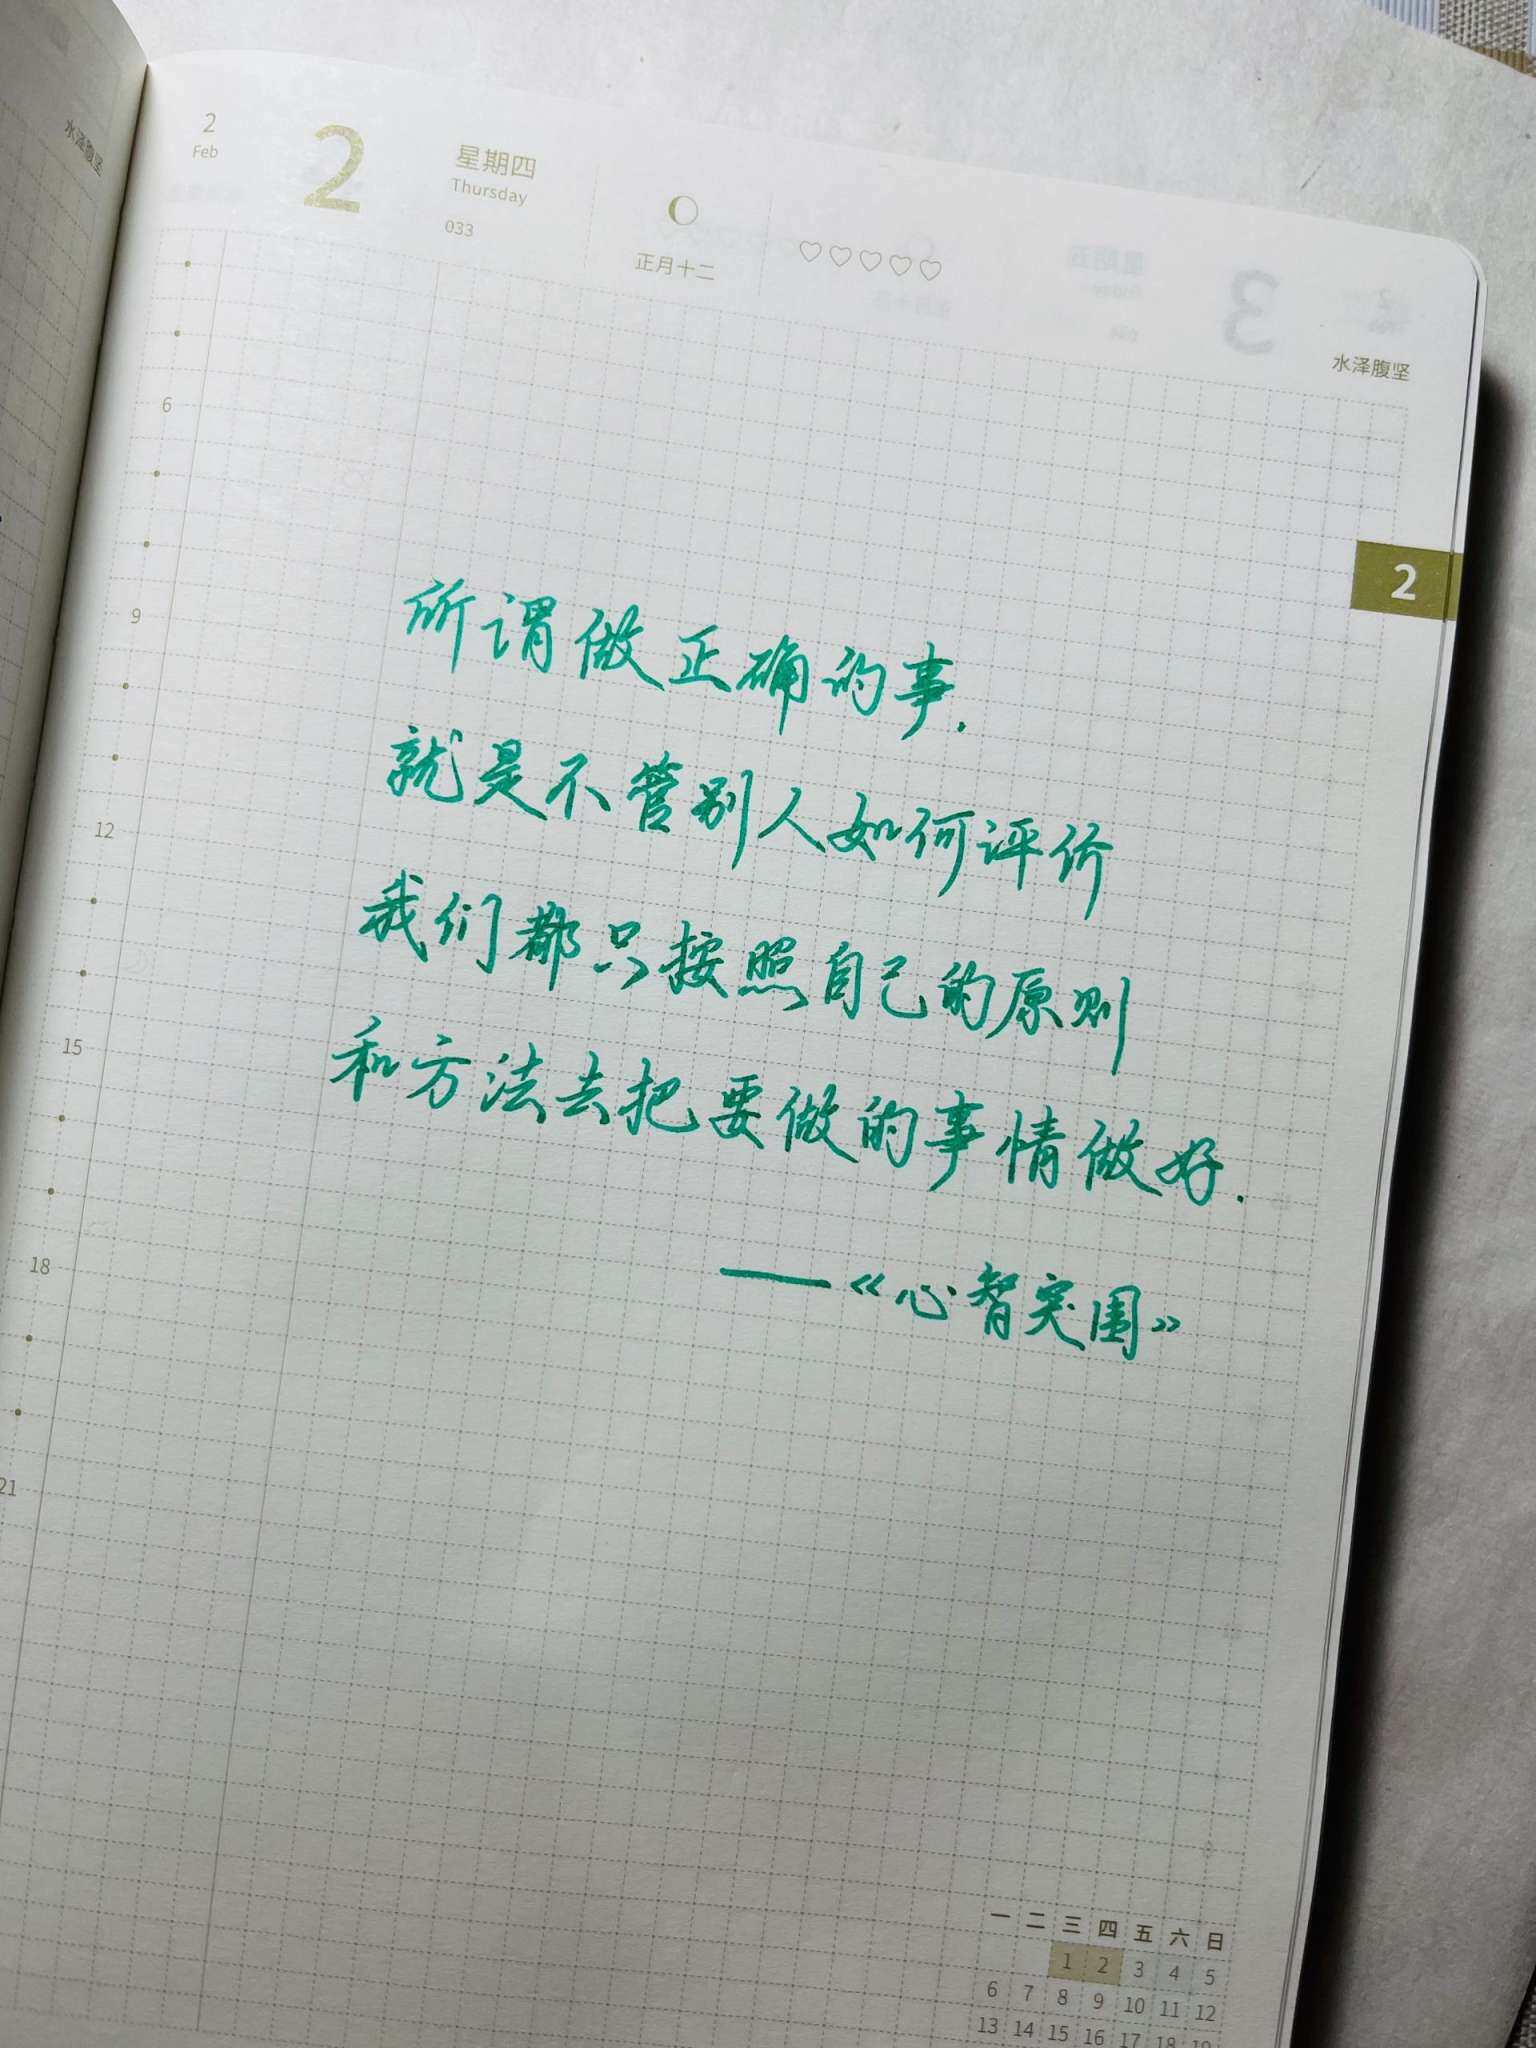 水泽腹坚
2
Feb
2
星期四
Thursday
033
正月十二
水泽腹坚
2
6
9
12
15
18
21
所谓做正确的事.
就是不管别人如何评价
我们都只按照自己的原则
和方法去把要做的事情做好.
——《心智突围》
一 二 三 四 五 六 日
1 2 3 4 5
6 7 8 9 10 11 12
13 14 15 16 17 18 19